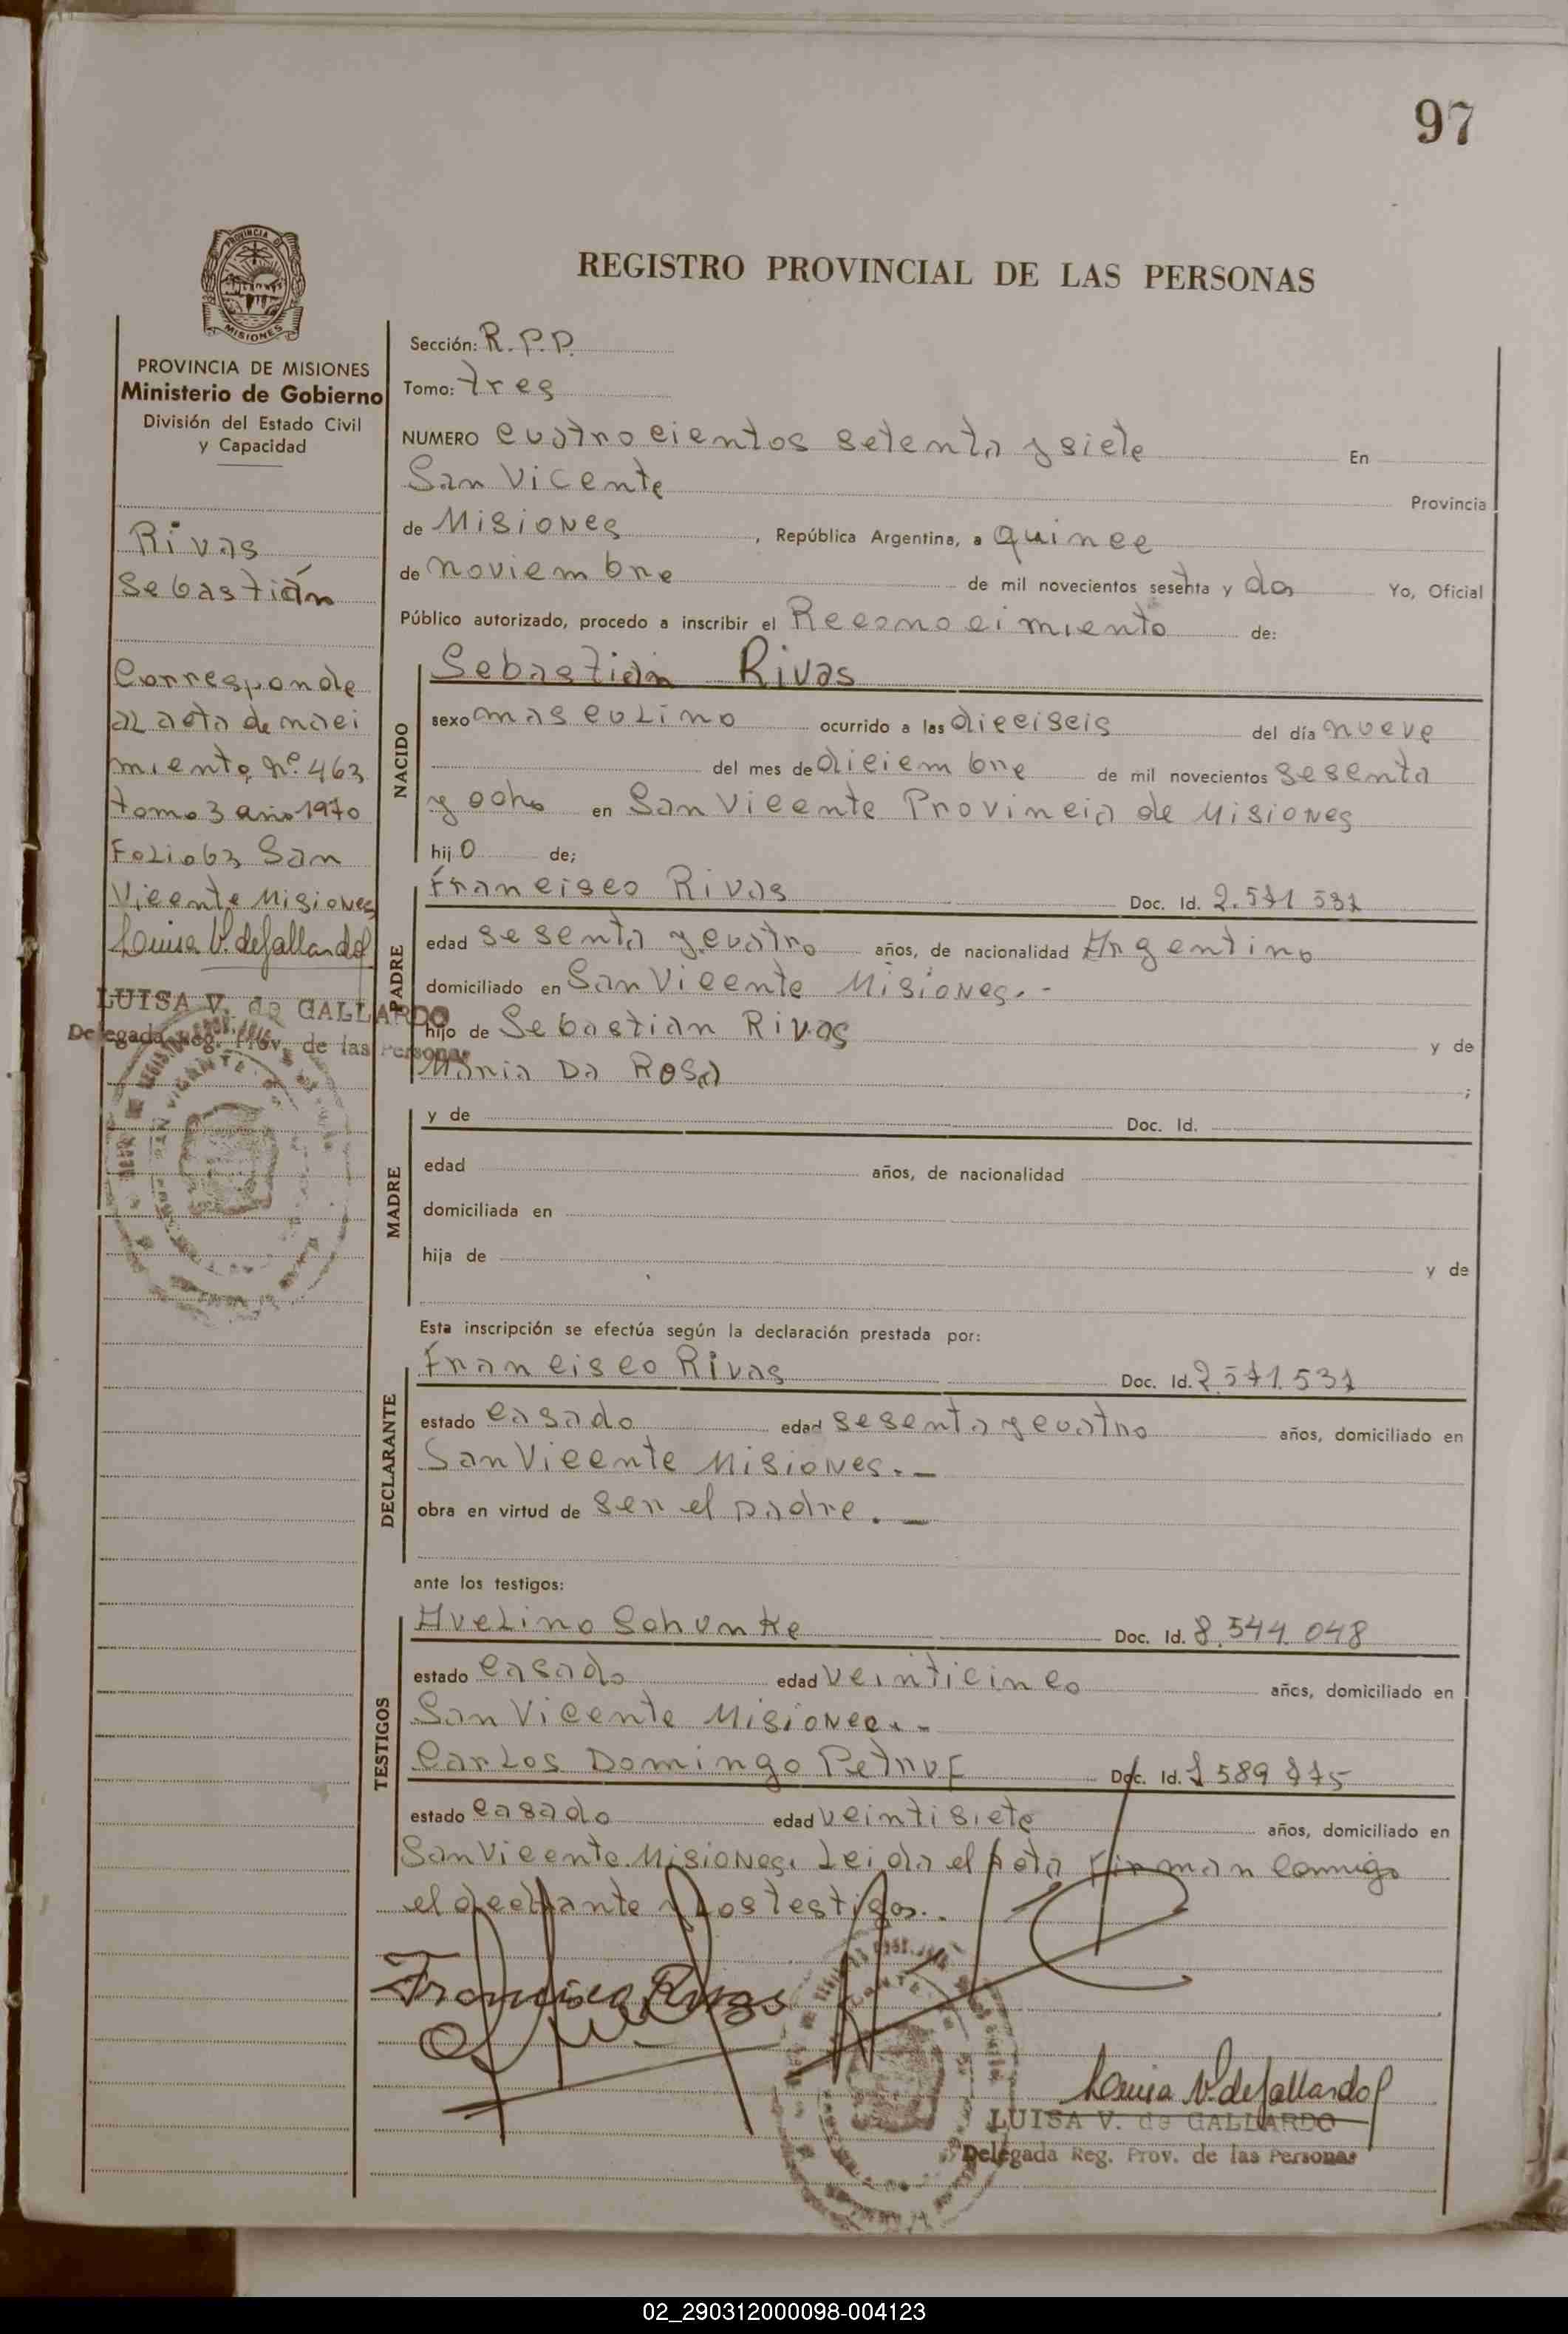 97
PROVINCIA DE
MISIONES
REGISTRO PROVINCIAL DE LAS PERSONAS
PROVINCIA DE MISIONES
Ministerio de Gobierno
División del Estado Civil
y Capacidad
Rivas
Sebastián
Corresponde
al acta de naci
miento, Nº 463
tomo 3 año 1970
Folio 63 San
Vicente Misiones
Louisa V. de Gallardo
LUISA V. de GALLARDO
Delegada Reg. Prov. de las Personas
Sección: R.P.P.
Tomo: tres
NUMERO cuatrocientos setenta y siete En
San Vicente Provincia
de Misiones, República Argentina, a quince
de noviembre de mil novecientos sesenta y dos Yo, Oficial
Público autorizado, procedo a inscribir el Reconocimiento de:
NACIDO
Sebastián Rivas
sexo masculino ocurrido a las dieciseis del día nueve
del mes de diciembre de mil novecientos sesenta
y ocho en San Vicente Provincia de Misiones
hijo de;
PADRE
Francisco Rivas Doc. Id. 2.571.531
edad sesenta y cuatro años, de nacionalidad Argentino
domiciliado en San Vicente Misiones.-
hijo de Sebastian Rivas y de
Maria Da Rosa ;
MADRE
y de Doc. Id.
edad años, de nacionalidad
domiciliada en
hija de y de
Esta inscripción se efectúa según la declaración prestada por:
DECLARANTE
Francisco Rivas Doc. Id. 2.571.531
estado casado edad sesenta y cuatro años, domiciliado en
San Vicente Misiones.-
obra en virtud de ser el padre.-
ante los testigos:
TESTIGOS
Avelino Schunke Doc. Id. 8.544.048
estado casado edad veinticinco años, domiciliado en
San Vicente Misiones.-
Carlos Domingo Petruf Doc. Id. 589 775
estado casado edad veintisiete años, domiciliado en
San Vicente Misiones. Leida el Acta firman conmigo
el declante y los testigos.-
Francisco Rivas
Louisa V. de Gallardo
LUISA V. de GALLARDO
Delegada Reg. Prov. de las Personas
02_290312000098-004123